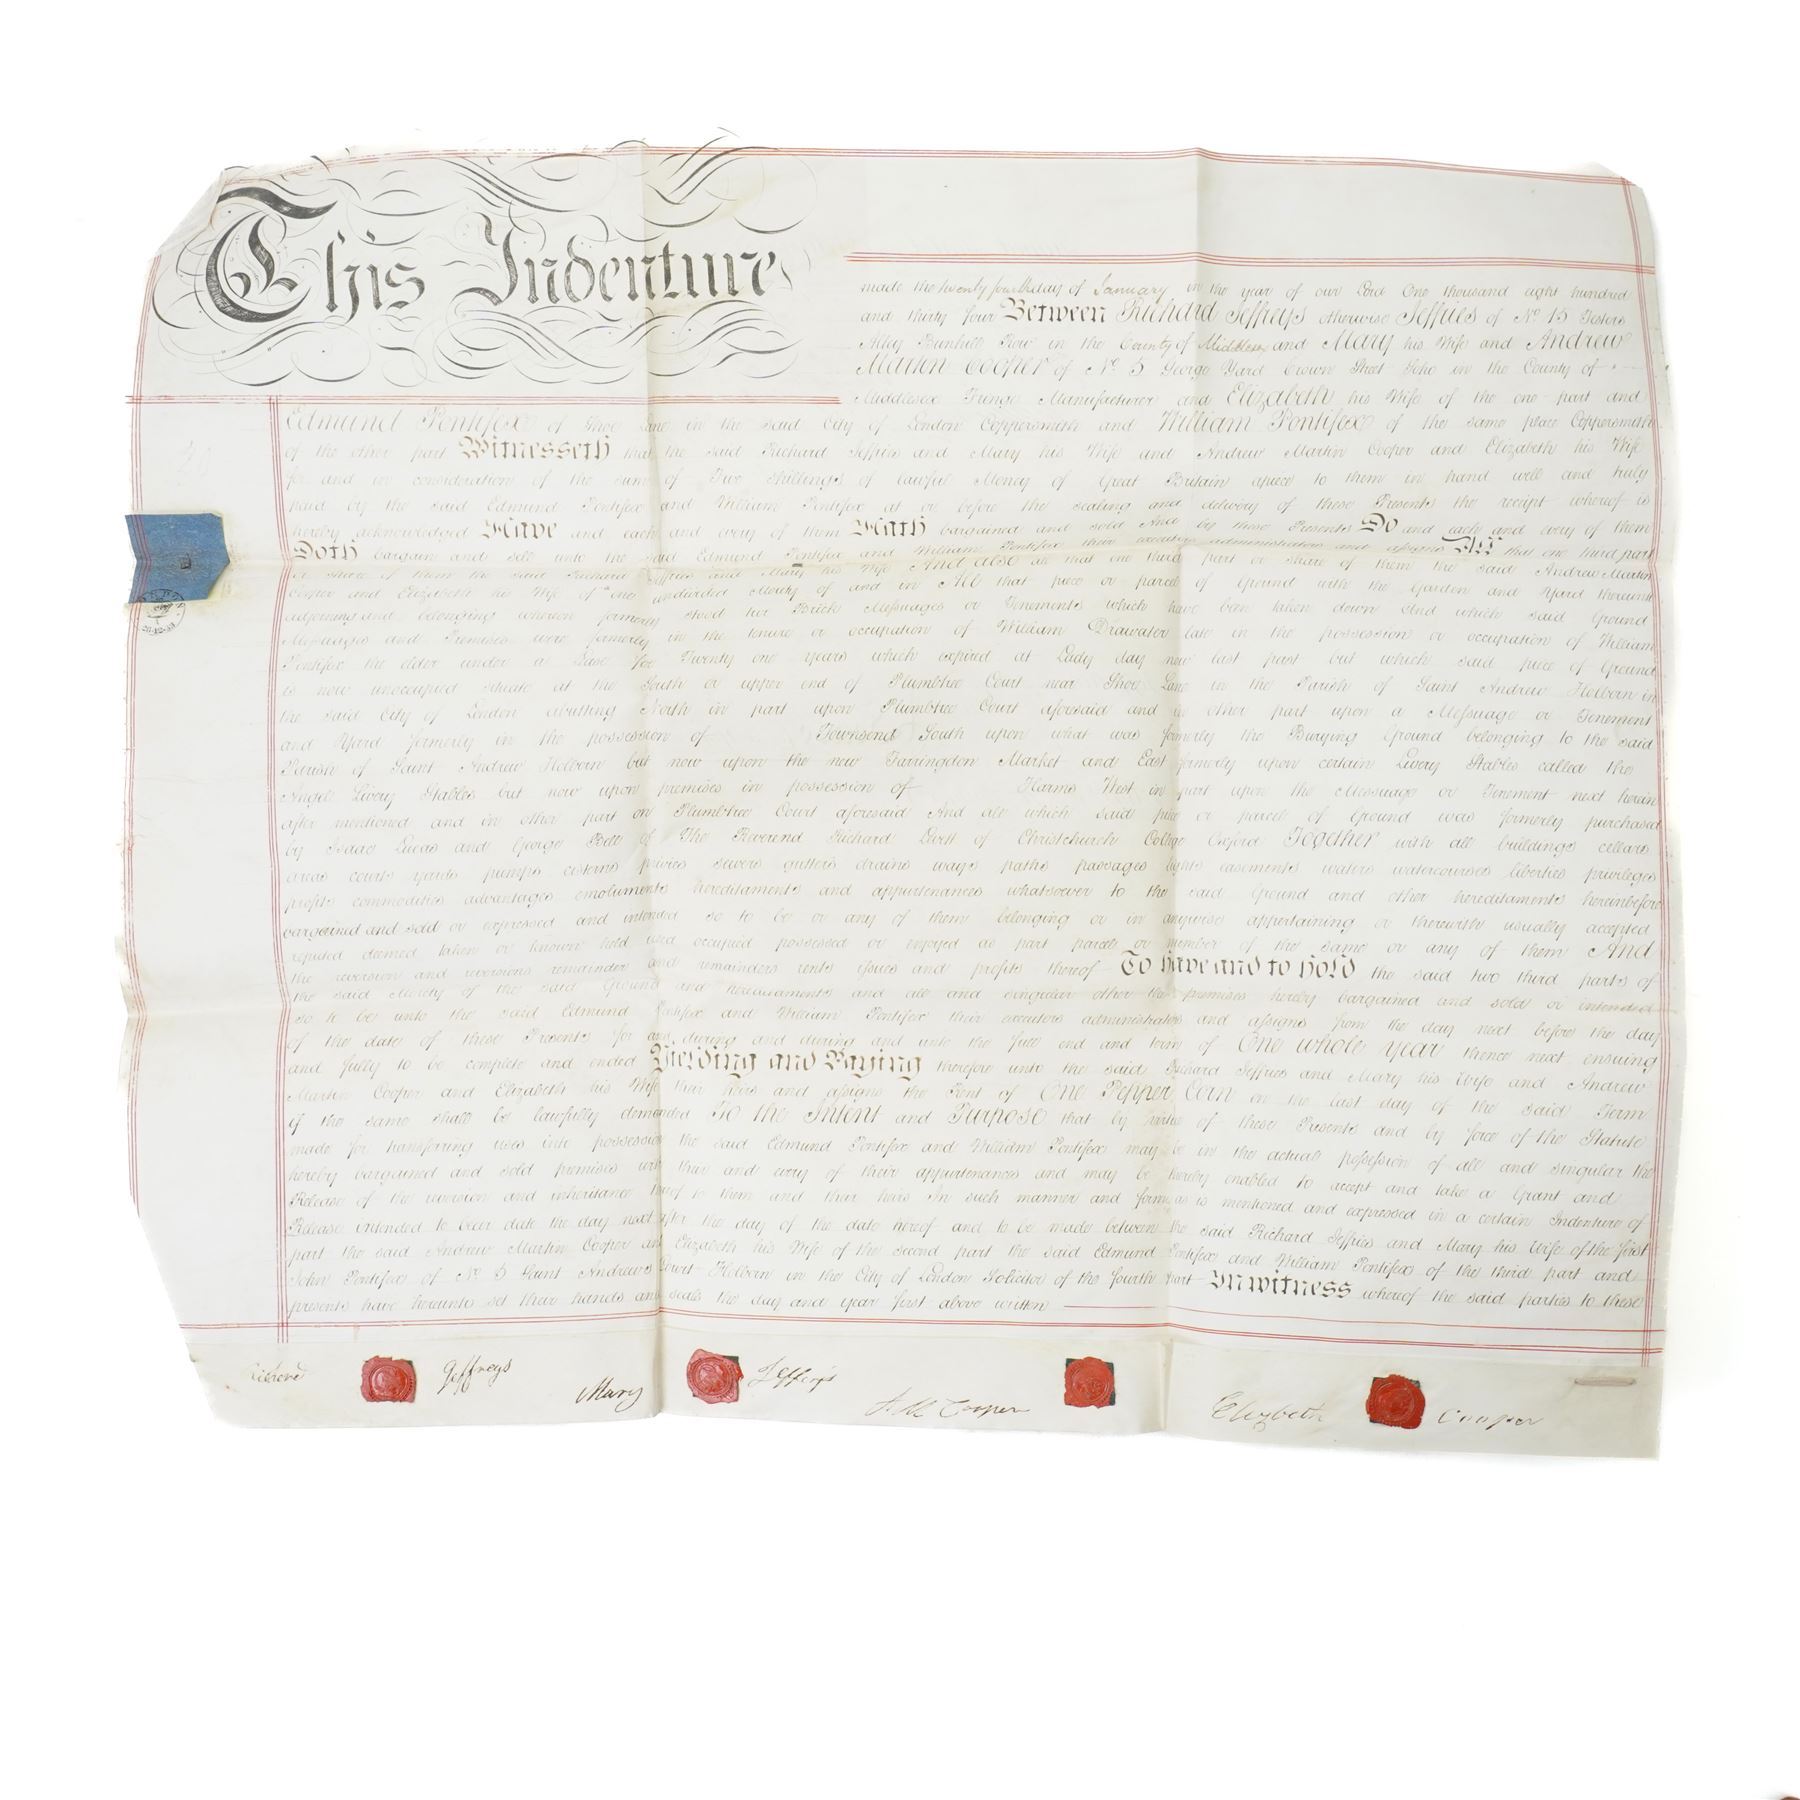 This Indenture
made the twenty fourth day of January in the year of our Lord One thousand eight hundred
and thirty four Between Richard Jeffreys otherwise Jeffries of No 15
Alley Bunhill Row in the County of Middlesex and Mary his Wife and Andrew
Martin Cooper of No 5 George Yard Crown Street Soho in the County of
Middlesex Fringe Manufacturer and Elizabeth his Wife of the one part and
Edmund Pontifex of Shoe Lane in the said City of London Coppersmith and William Pontifex of the same place Coppersmith
of the other part Witnesseth that the said Richard Jeffries and Mary his Wife and Andrew Martin Cooper and Elizabeth his Wife
for and in consideration of the sum of Five Shillings of lawful Money of Great Britain apiece to them in hand well and truly
paid by the said Edmund Pontifex and William Pontifex at or before the sealing and delivery of these Presents the receipt whereof is
hereby acknowledged Have and each and every of them Hath bargained and sold And by these Presents Do and each and every of them
Doth bargain and sell unto the said Edmund Pontifex and William Pontifex their executors administrators and assigns All that one third part
or share of them the said Richard Jeffries and Mary his Wife And also all that one third part or share of them the said Andrew Martin
Cooper and Elizabeth his Wife of one undivided Moiety of and in All that piece or parcel of Ground with the Garden and Yard thereunto
adjoining and belonging whereon formerly stood two Brick Messuages or Tenements which have been taken down And which said Ground
Messuages and Premises were formerly in the tenure or occupation of William Drawater late in the possession or occupation of William
Pontifex the elder under a Lease for Twenty one years which expired at Lady day now last past but which said piece of Ground
is now unoccupied situate at the South or upper end of Plumbtree Court near Shoe Lane in the Parish of Saint Andrew Holborn in
the said City of London abutting North in part upon Plumbtree Court aforesaid and in other part upon a Messuage or Tenement
and Yard formerly in the possession of Townsend South upon what was formerly the Burying Ground belonging to the said
Parish of Saint Andrew Holborn but now upon the new Farringdon Market and East formerly upon certain Livery Stables called the
Angel Livery Stables but now upon premises in possession of Harms West in part upon the Messuage or Tenement next herein
after mentioned and in other part on Plumbtree Court aforesaid And all which said piece or parcel of Ground was formerly purchased
by Isaac Lucas and George Bell of The Reverend Richard of Christchurch College Oxford Together with all buildings cellars
areas courts yards pumps cisterns privies sewers gutters drains ways paths passages lights easements waters watercourses liberties privileges
profits commodities advantages emoluments hereditaments and appurtenances whatsoever to the said Ground and other hereditaments hereinbefore
bargained and sold or expressed and intended so to be or any of them belonging or in anywise appertaining or therewith usually accepted
reputed deemed taken or known held used occupied possessed or enjoyed as part parcel or member of the same or any of them And
the reversion and reversions remainder and remainders rents issues and profits thereof To have and to hold the said two third parts of
the said Moiety of the said Ground and hereditaments and all and singular other the premises hereby bargained and sold or intended
so to be unto the said Edmund Pontifex and William Pontifex their executors administrators and assigns from the day next before the day
of the date of these Presents for and during and during and unto the full end and term of One whole year thence next ensuing
and fully to be complete and ended Yielding and Paying therefore unto the said Richard Jeffries and Mary his Wife and Andrew
Martin Cooper and Elizabeth his Wife their heirs and assigns the Rent of One Pepper Corn on the last day of the said Term
if the same shall be lawfully demanded To the Intent and Purpose that by virtue of these Presents and by force of the Statute
made for transferring uses into possession the said Edmund Pontifex and William Pontifex may be in the actual possession of all and singular the
hereby bargained and sold premises with their and every of their appurtenances and may be thereby enabled to accept and take a Grant and
Release of the reversion and inheritance thereof to them and their heirs In such manner and form as is mentioned and expressed in a certain Indenture of
Release intended to bear date the day next after the day of the date hereof and to be made between the said Richard Jeffries and Mary his Wife of the first
part the said Andrew Martin Cooper and Elizabeth his Wife of the second part the said Edmund Pontifex and William Pontifex of the third part and
John Pontifex of No 5 Saint Andrews Court Holborn in the City of London Solicitor of the fourth part In witness whereof the said parties to these
presents have hereunto set their hands and seals the day and year first above written
Richard Jeffreys Mary Jefferys A M Cooper Elizabeth Cooper